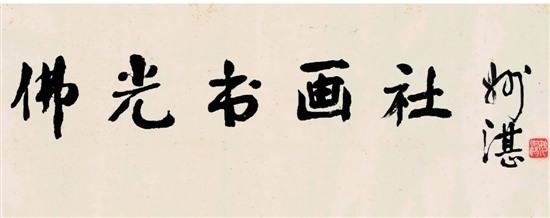 佛光书画社
妙湛